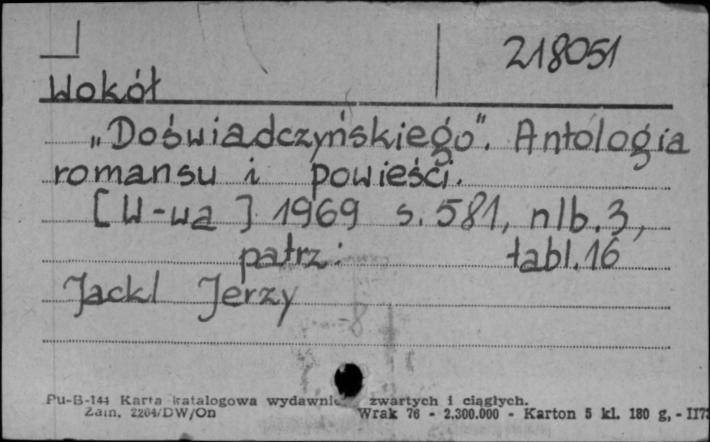 218051
Wokół
„Doświadczyńskiego". Antologia
romansu i powieści.
[W-wa] 1969 s. 581, nlb. 3,
patrz: tabl. 16
Jackl Jerzy
Pu-B-144 Karta katalogowa wydawnic zwartych i ciągłych.
Zam. 2264/DW/On Wrak 76 - 2.300.000 - Karton 5 kl. 180 g, -